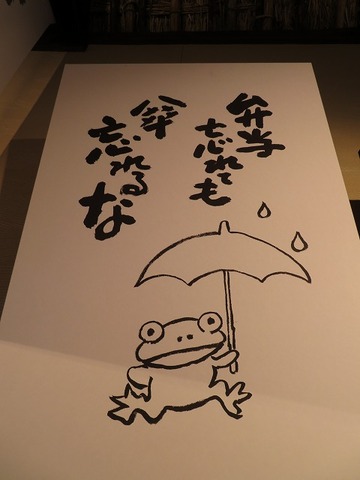 弁当
忘れても
傘
忘れるな